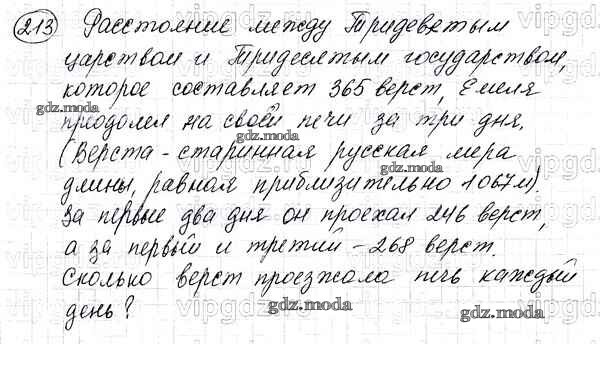 213) Расстояние между Тридевятым
царством и Тридесятым государством,
которое составляет 365 верст, Емеля
преодолел на своей печи за три дня.
(Верста - старинная русская мера
длины, равная приблизительно 1067м).
За первые два дня он проехал 246 верст,
а за первый и третий - 268 верст.
Сколько верст проезжала печь каждый
день?
gdz.moda
gdz.moda
gdz.moda
gdz.moda
gdz.moda